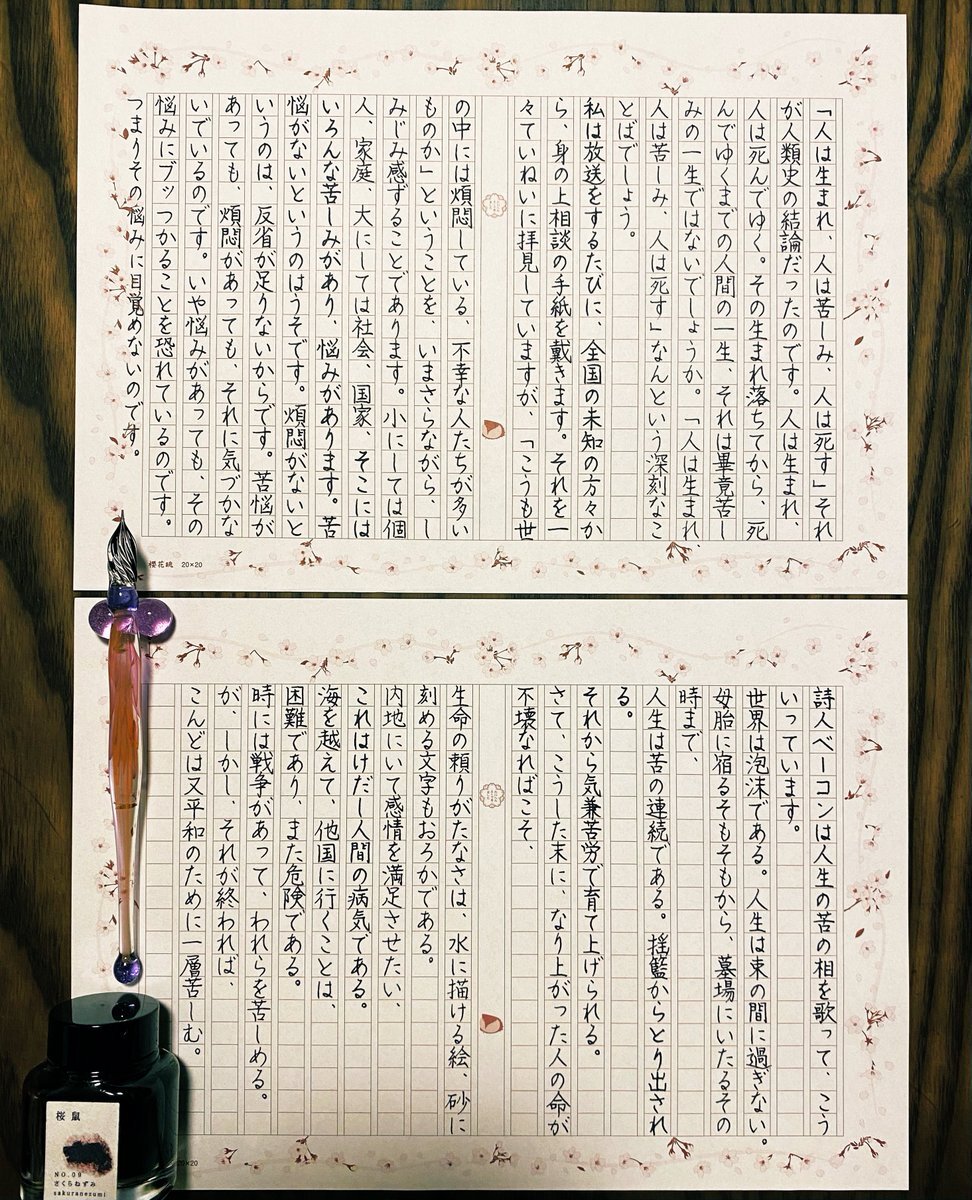 「人は生まれ、人は苦しみ、人は死す」それ
が人類史の結論だったのです。人は生まれ、
人は死んでゆく。その生まれ落ちてから、死
んでゆくまでの人間の一生、それは畢竟苦し
みの一生ではないでしょうか。「人は生まれ、
人は苦しみ、人は死す」なんという深刻なこ
とばでしょう。
私は放送をするたびに、全国の未知の方々か
ら、身の上相談の手紙を戴きます。それを一
々ていねいに拝見していますが、「こうも世
の中には煩悶している、不幸な人たちが多い
ものか」ということを、いまさらながら、し
みじみ感ずることであります。小にしては個
人、家庭、大にしては社会、国家、そこには
いろんな苦しみがあり、悩みがあります。苦
悩がないというのはうそです。煩悶がないと
いうのは、反省が足りないからです。苦悩が
あっても、煩悶があっても、それに気づかな
いでいるのです。いや悩みがあっても、その
悩みにブッつかることを恐れているのです。
つまりその悩みに目覚めないのです。
櫻花眺 20×20
詩人ベーコンは人生の苦の相を歌って、こう
いっています。
世界は泡沫である。人生は束の間に過ぎない。
母胎に宿るそもそもから、墓場にいたるその
時まで、
人生は苦の連続である。揺籃からとり出され
る。
それから気兼苦労で育て上げられる。
さて、こうした末に、なり上がった人の命が
不壊なればこそ、
生命の頼りがたなさは、水に描ける絵、砂に
刻める文字もおろかである。
内地にいて感情を満足させたい、
これはけだし人間の病気である。
海を越えて、他国に行くことは、
困難であり、また危険である。
時には戦争があって、われらを苦しめる。
が、しかし、それが終われば、
こんどは又平和のために一層苦しむ。
20×20
桜鼠
NO.09
さくらねずみ
sakuranezumi